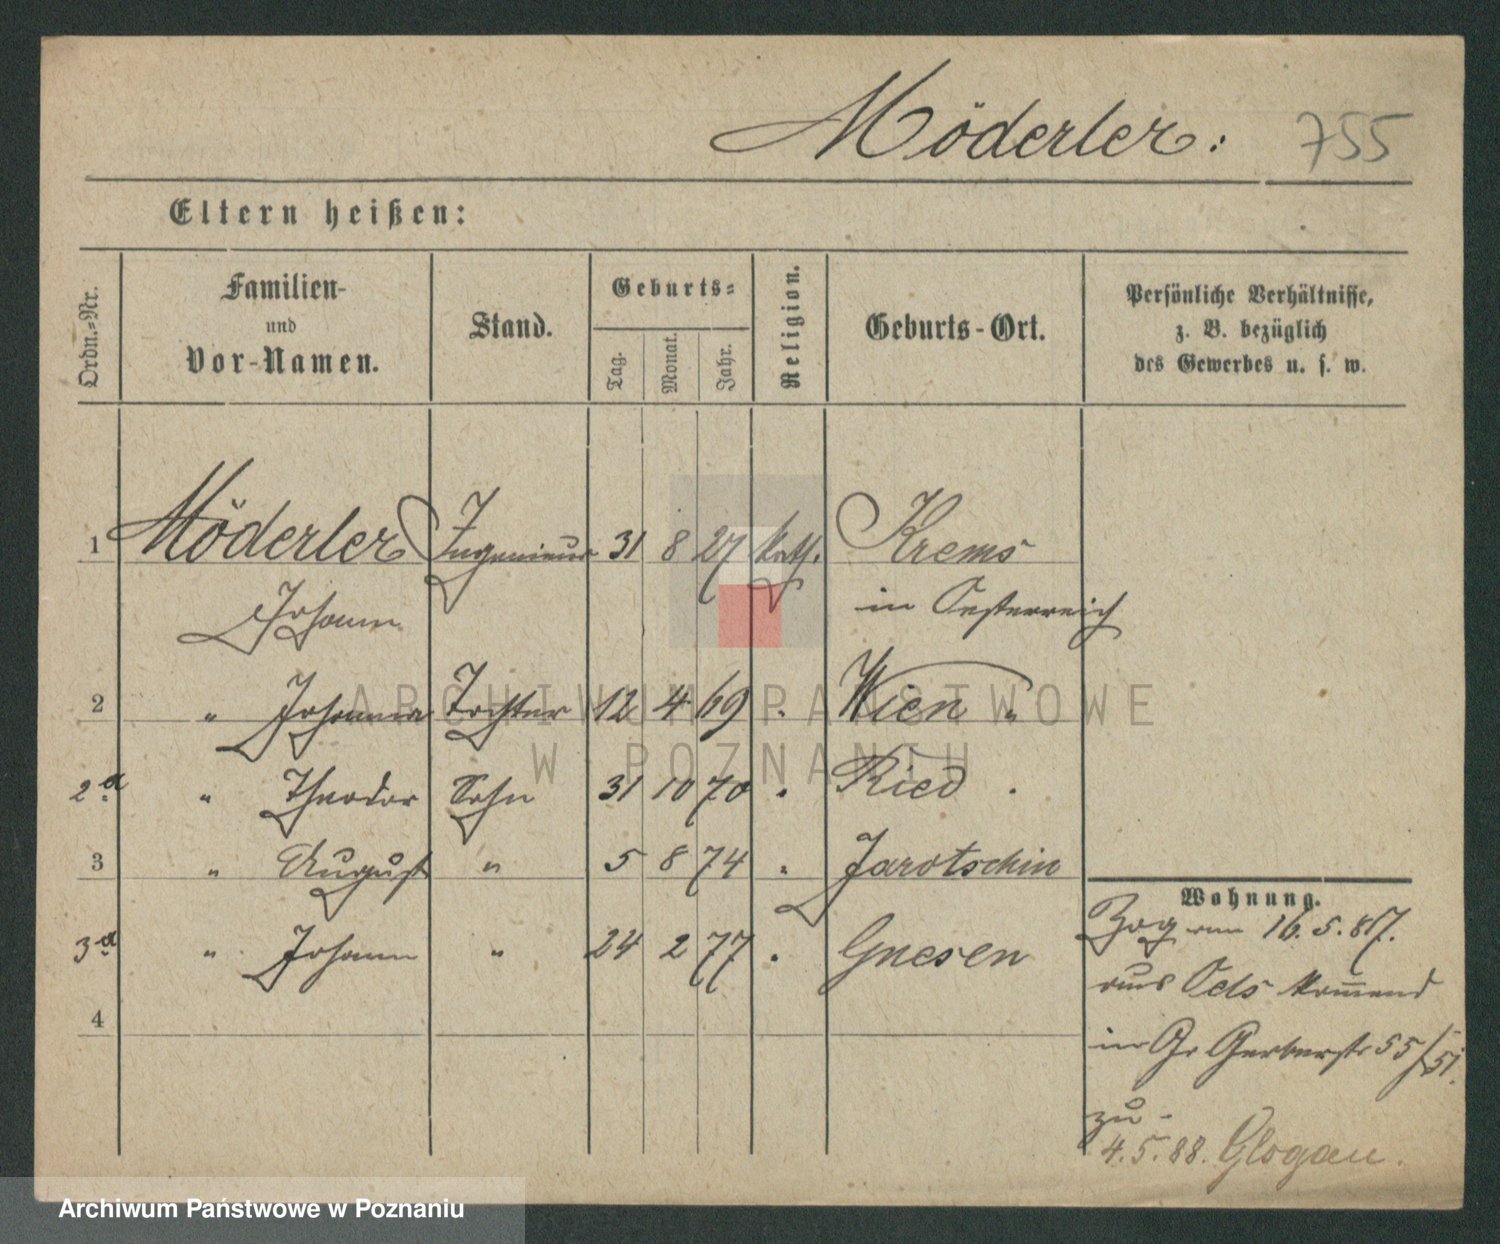 Möderler: 755
Eltern heißen:
Ordn.=Nr.
Familien-
und
Vor-Namen.
Stand.
Geburts=
Tag.
Monat.
Jahr.
Religion.
Geburts-Ort.
Persönliche Verhältnisse,
z. B. bezüglich
des Gewerbes u. s. w.
1 Möderler Ingenieur 31 8 27 kath. Krems
Johann in Oesterreich
2 " Johanna Tochter 12 4 69 " Wien "
2.a " Theodor Sohn 31 10 70 " Ried "
3 " August " 5 8 74 " Jarotschin
3.a " Johann " 24 2 77 " Gnesen
4
Wohnung.
Zog am 16.5.87.
aus Oels kommend
in Gr Gerberstr 55/51.
zu -
4.5.88. Glogau.
ARCHIWUM PAŃSTWOWE
W POZNANIU
Archiwum Państwowe w Poznaniu